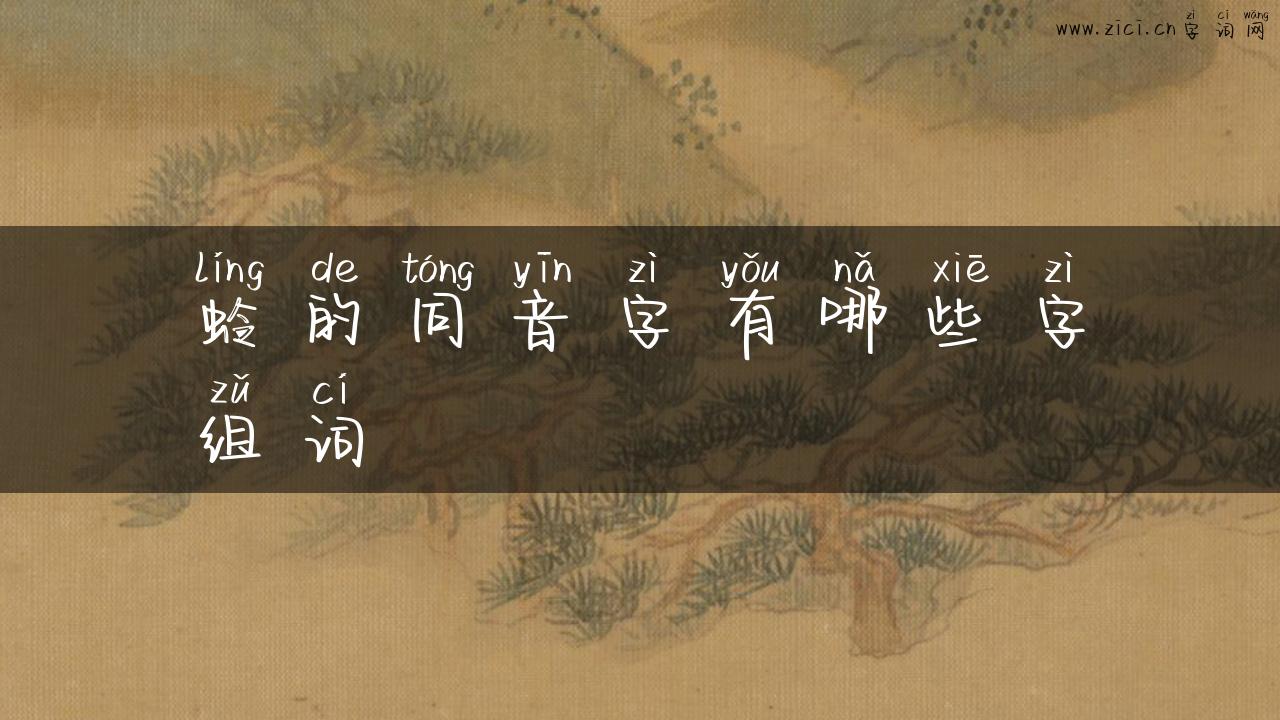 zì cí wǎng
www.zici.cn 字词网
líng de tóng yīn zì yǒu nǎ xiē zì
蛉的同音字有哪些字
zǔ cí
组词